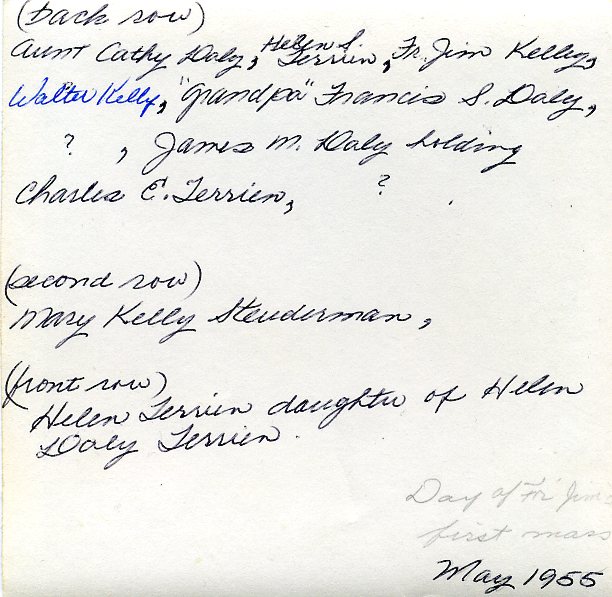 (back row)
Aunt Cathy Daly, Helen S. Terrien, Fr. Jim Kelley,
Walter Kelly, "Grandpa" Francis S. Daly,
? , James M. Daly holding
Charles E. Terrien, ?
(second row)
Mary Kelly Steuderman,
(front row)
Helen Terrien daughter of Helen
Daly Terrien.
Day of Fr Jim
first mass
May 1955